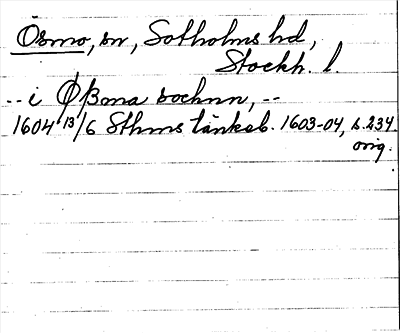 Ösmo, sn, Sotholms hd,
Stockh. l.
-- i Ößma sochnn, --
1604 13/6 Sthms tänkeb. 1603-04, s. 234.
orig.